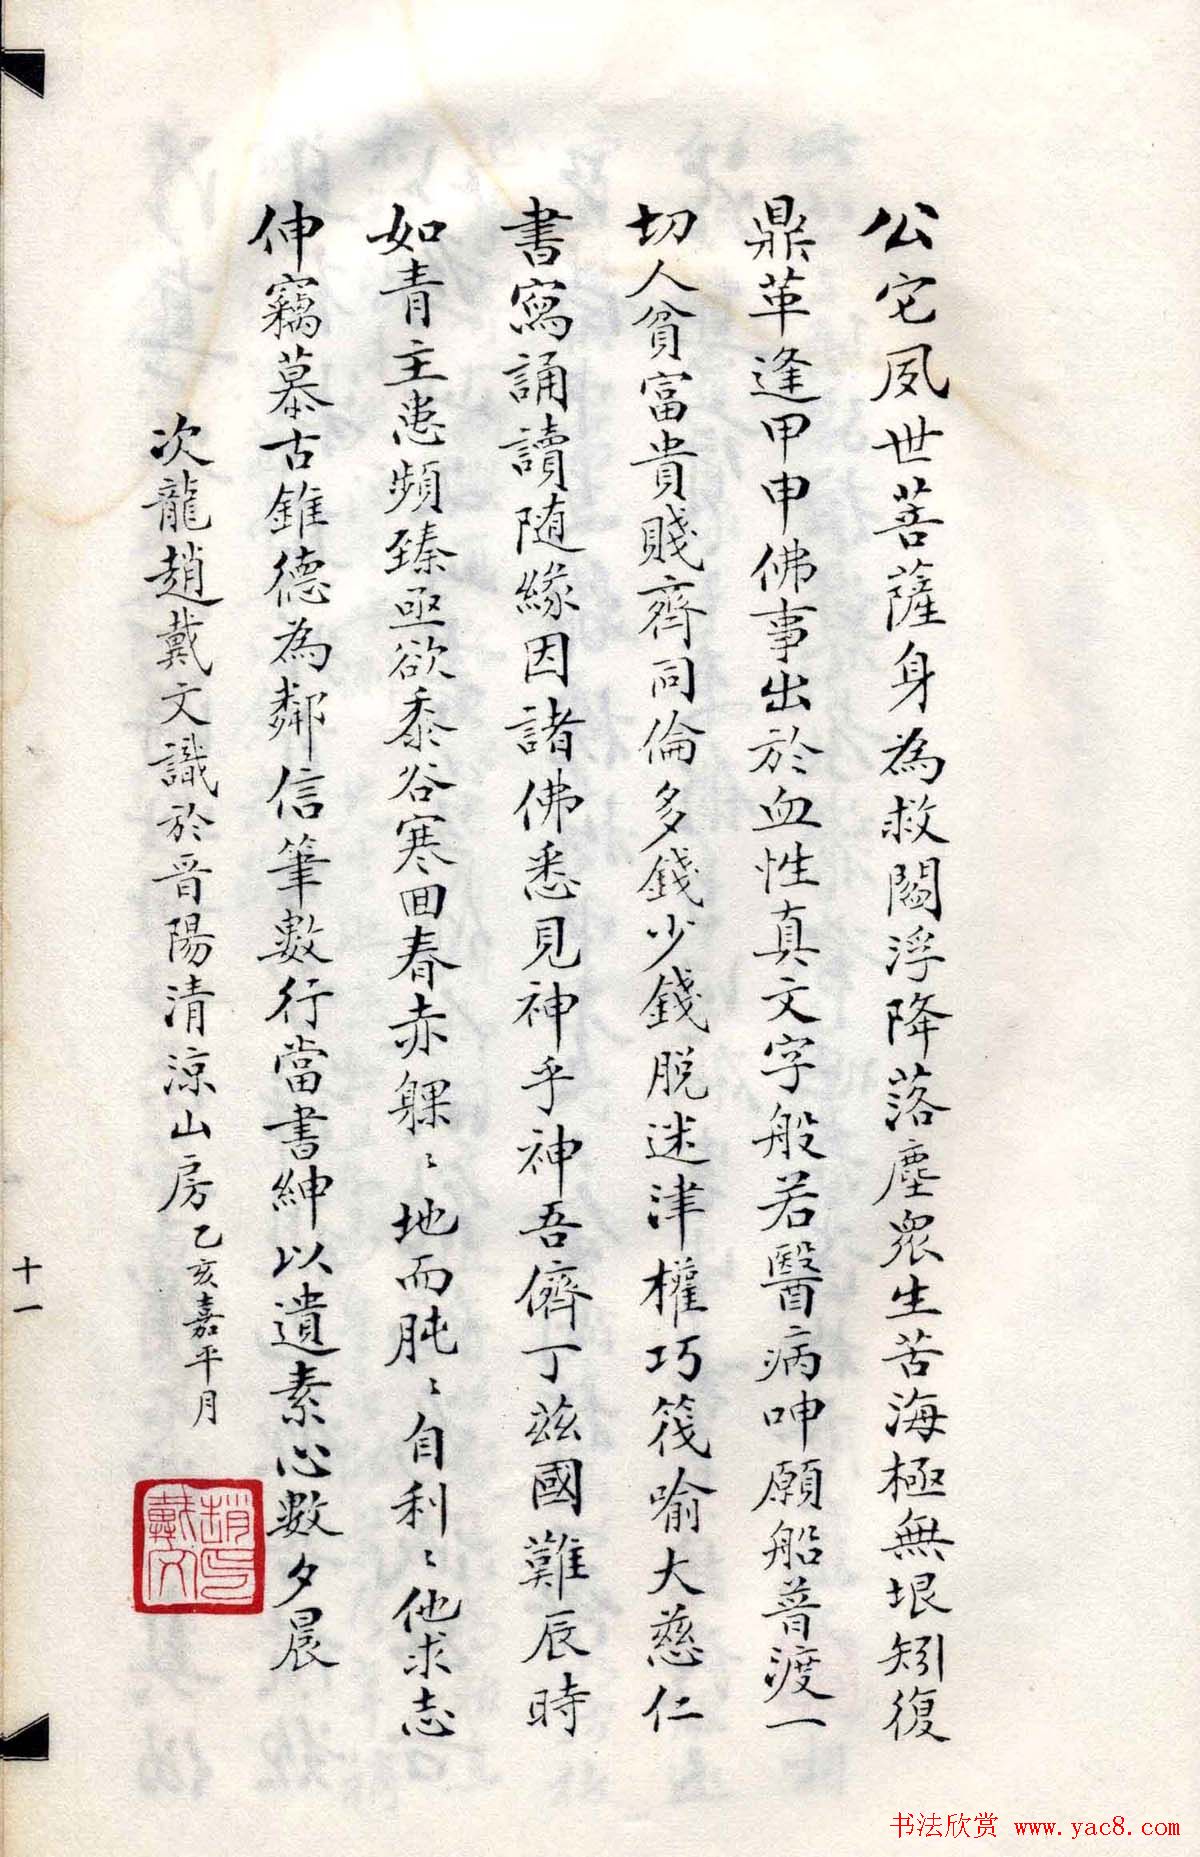 公它夙世菩薩身為救閻浮降落塵衆生苦海極無垠矧復
鼎革逢甲申佛事出於血性真文字般若醫病呻願船普渡一
切人貧富貴賤齊同倫多錢少錢脱迷津權巧筏喻大慈仁
書寫誦讀随緣因諸佛悉見神乎神吾儕丁兹國難辰時
如青主患頻臻亟欲黍谷寒回春赤躶〻地而肫〻自利〻他求志
伸竊慕古錐德為鄰信筆數行當書紳以遺素心數夕晨
次龍趙戴文識於晋陽清涼山房乙亥嘉平月
趙氏戴文
十一
书法欣赏 www.yac8.com